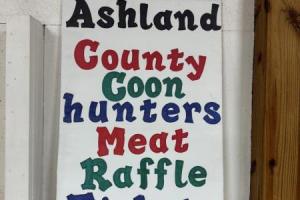 Ashland
County
Coon
hunters
Meat
Raffle